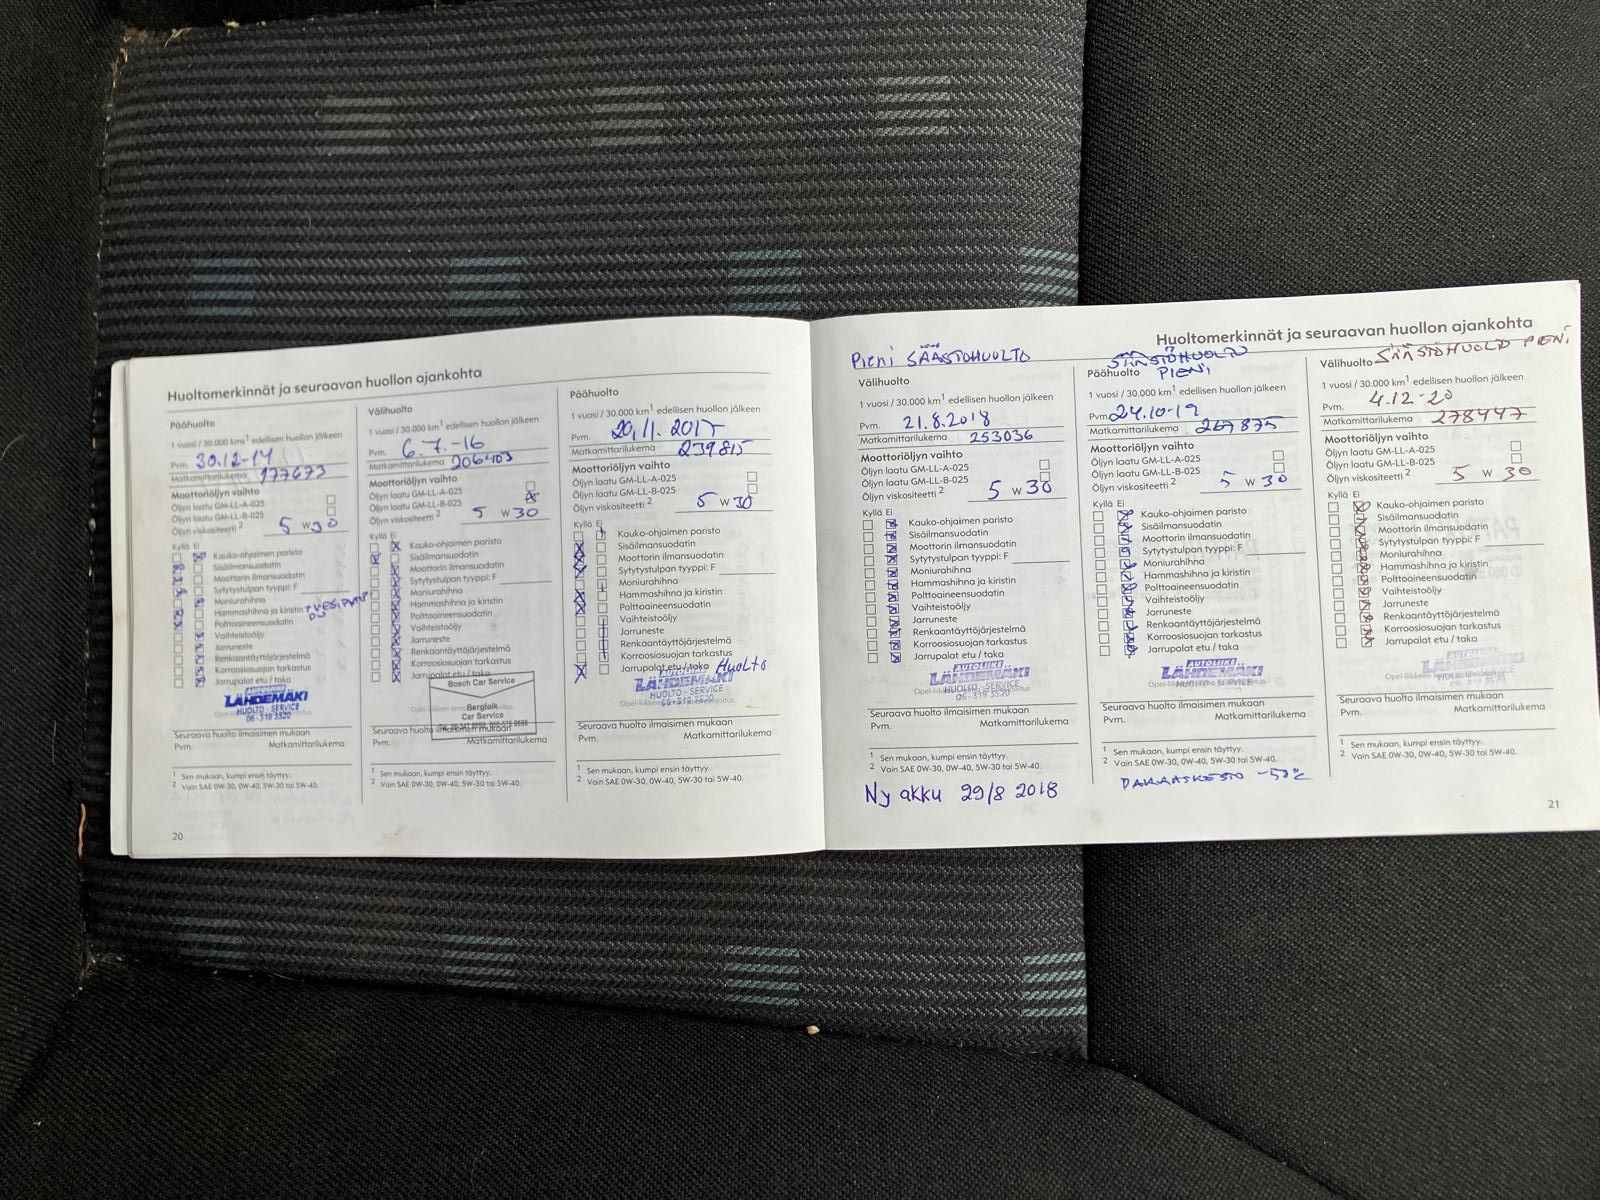 Huoltomerkinnät ja seuraavan huollon ajankohta
Päähuolto
1 vuosi / 30.000 kms¹ edellisen huollon jälkeen
Pvm. 30.12-14
Matkamittarilukema 177673
Moottoriöljyn vaihto
Öljyn laatu GM-LL-A-025
Öljyn laatu GM-LL-B-025
Öljyn viskositeetti ² 5 W 30
Kyllä Ei
Kauko-ohjaimen paristo
Sisäilmansuodatin
Moottorin ilmansuodatin
Sytytystulpan tyyppi: F
Moniurahihna
Hammashihna ja kiristin + VESIPUMP
Polttoaineensuodatin
Vaihteistoöljy
Jarruneste
Renkaantäyttöjärjestelmä
Korroosiosuojan tarkastus
Jarrupalat etu / taka
AUTOLIIKE
LÄHDEMÄKI
HUOLTO - SERVICE
06-318 3520
Seuraava huolto ilmaisimen mukaan
Pvm. Matkamittarilukema
¹ Sen mukaan, kumpi ensin täyttyy.
² Vain SAE 0W-30, 0W-40, 5W-30 tai 5W-40.
20
Välihuolto
1 vuosi / 30.000 km¹ edellisen huollon jälkeen
Pvm. 6.7.-16
Matkamittarilukema 206403
Moottoriöljyn vaihto
Öljyn laatu GM-LL-A-025
Öljyn laatu GM-LL-B-025
Öljyn viskositeetti ² 5 W 30
Kyllä Ei
Kauko-ohjaimen paristo
Sisäilmansuodatin
Moottorin ilmansuodatin
Sytytystulpan tyyppi: F
Moniurahihna
Hammashihna ja kiristin
Polttoaineensuodatin
Vaihteistoöljy
Jarruneste
Renkaantäyttöjärjestelmä
Korroosiosuojan tarkastus
Jarrupalat etu / taka
Bosch Car Service
Bergfalk
Car Service
Seuraava huolto ilmaisimen mukaan
Matkamittarilukema
¹ Sen mukaan, kumpi ensin täyttyy.
² Vain SAE 0W-30, 0W-40, 5W-30 tai 5W-40.
Päähuolto
1 vuosi / 30.000 km¹ edellisen huollon jälkeen
Pvm. 20.11.2017
Matkamittarilukema 239815
Moottoriöljyn vaihto
Öljyn laatu GM-LL-A-025
Öljyn laatu GM-LL-B-025
Öljyn viskositeetti ² 5 W 30
Kyllä Ei
Kauko-ohjaimen paristo
Sisäilmansuodatin
Moottorin ilmansuodatin
Sytytystulpan tyyppi: F
Moniurahihna
Hammashihna ja kiristin
Polttoaineensuodatin
Vaihteistoöljy
Jarruneste
Renkaantäyttöjärjestelmä
Korroosiosuojan tarkastus
Jarrupalat etu / taka Huolto
LÄHDEMÄKI
HUOLTO - SERVICE
Seuraava huolto ilmaisimen mukaan
Pvm. Matkamittarilukema
¹ Sen mukaan, kumpi ensin täyttyy.
² Vain SAE 0W-30, 0W-40, 5W-30 tai 5W-40.
Huoltomerkinnät ja seuraavan huollon ajankohta
Pieni SÄÄSTÖHUOLTO
Välihuolto
1 vuosi / 30.000 km¹ edellisen huollon jälkeen
Pvm. 21.8.2018
Matkamittarilukema 253036
Moottoriöljyn vaihto
Öljyn laatu GM-LL-A-025
Öljyn laatu GM-LL-B-025
Öljyn viskositeetti ² 5 W 30
Kyllä Ei
Kauko-ohjaimen paristo
Sisäilmansuodatin
Moottorin ilmansuodatin
Sytytystulpan tyyppi: F
Moniurahihna
Hammashihna ja kiristin
Polttoaineensuodatin
Vaihteistoöljy
Jarruneste
Renkaantäyttöjärjestelmä
Korroosiosuojan tarkastus
Jarrupalat etu / taka
AUTOLIIKE
LÄHDEMÄKI
HUOLTO - SERVICE
06-318 3520
Seuraava huolto ilmaisimen mukaan
Pvm. Matkamittarilukema
¹ Sen mukaan, kumpi ensin täyttyy.
² Vain SAE 0W-30, 0W-40, 5W-30 tai 5W-40.
Ny akku 29/8 2018
SÄÄSTÖHUOLTO
Päähuolto PIENI
1 vuosi / 30.000 km¹ edellisen huollon jälkeen
Pvm. 24.10-19
Matkamittarilukema 267875
Moottoriöljyn vaihto
Öljyn laatu GM-LL-A-025
Öljyn laatu GM-LL-B-025
Öljyn viskositeetti ² 5 W 30
Kyllä Ei
Kauko-ohjaimen paristo
Sisäilmansuodatin
Moottorin ilmansuodatin
Sytytystulpan tyyppi: F
Moniurahihna
Hammashihna ja kiristin
Polttoaineensuodatin
Vaihteistoöljy
Jarruneste
Renkaantäyttöjärjestelmä
Korroosiosuojan tarkastus
Jarrupalat etu / taka
AUTOLIIKE
LÄHDEMÄKI
HUOLTO - SERVICE
Seuraava huolto ilmaisimen mukaan
Pvm. Matkamittarilukema
¹ Sen mukaan, kumpi ensin täyttyy.
² Vain SAE 0W-30, 0W-40, 5W-30 tai 5W-40.
PAKKASKESTO -50°C
Välihuolto SÄÄSTÖHUOLTO PIENI
1 vuosi / 30.000 km¹ edellisen huollon jälkeen
Pvm. 4.12-20
Matkamittarilukema 278447
Moottoriöljyn vaihto
Öljyn laatu GM-LL-A-025
Öljyn laatu GM-LL-B-025
Öljyn viskositeetti ² 5 W 30
Kyllä Ei
Kauko-ohjaimen paristo
Sisäilmansuodatin
Moottorin ilmansuodatin
Sytytystulpan tyyppi: F
Moniurahihna
Hammashihna ja kiristin
Polttoaineensuodatin
Vaihteistoöljy
Jarruneste
Renkaantäyttöjärjestelmä
Korroosiosuojan tarkastus
Jarrupalat etu / taka
LÄHDEMÄKI
Seuraava huolto ilmaisimen mukaan
Pvm. Matkamittarilukema
¹ Sen mukaan, kumpi ensin täyttyy.
² Vain SAE 0W-30, 0W-40, 5W-30 tai 5W-40.
21